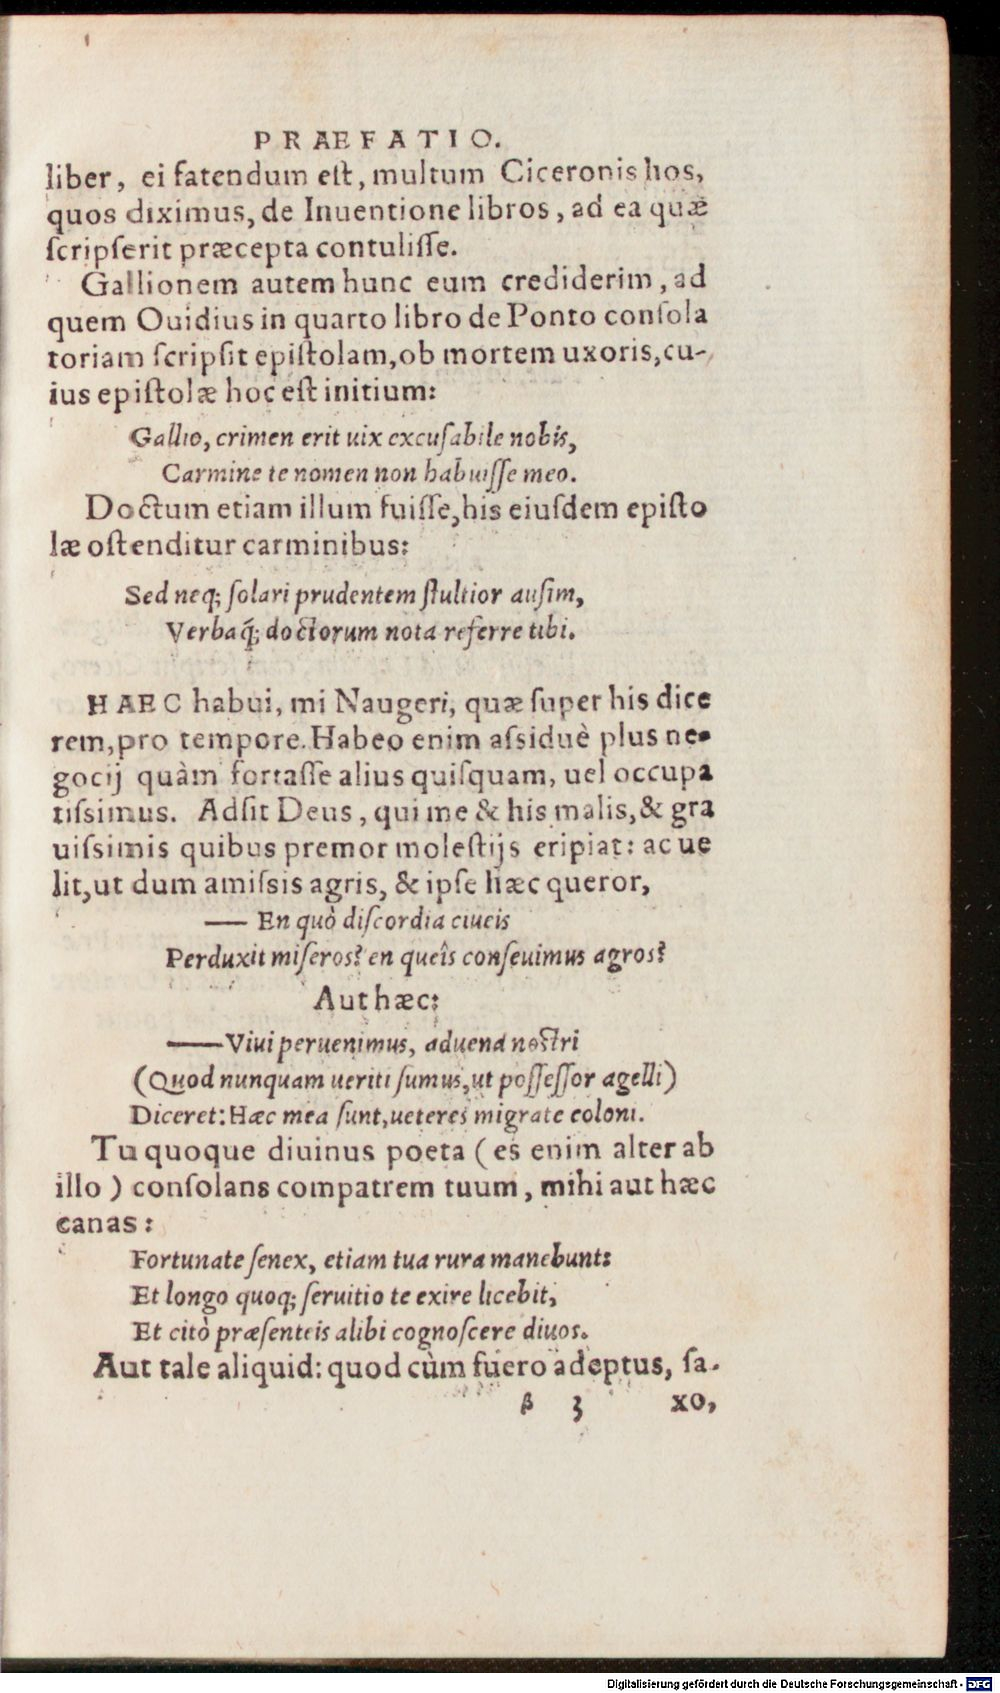 PRAEFATIO.
liber, ei fatendum est, multum Ciceronis hos,
quos diximus, de Inuentione libros, ad ea quæ
scripserit præcepta contulisse.
Gallionem autem hunc eum crediderim, ad
quem Ouidius in quarto libro de Ponto consola
toriam scripsit epistolam, ob mortem uxoris, cu-
ius epistolæ hoc est initium:
Gallio, crimen erit uix excusabile nobis,
Carmine te nomen non habuisse meo.
Doctum etiam illum fuisse, his eiusdem episto
læ ostenditur carminibus:
Sed neq; solari prudentem stultior ausim,
Verbaq́; doctorum nota referre tibi.
HAEC habui, mi Naugeri, quæ super his dice
rem, pro tempore. Habeo enim assiduè plus ne-
gocij quàm fortasse alius quisquam, uel occupa
tissimus. Adsit Deus, qui me & his malis, & gra
uissimis quibus premor molestijs eripiat: ac ue
lit, ut dum amissis agris, & ipse hæc queror,
— En quò discordia ciueis
Perduxit miseros? en queîs conseuimus agros?
Aut hæc:
— Viui peruenimus, aduena nostri
(Quod nunquam ueriti sumus, ut possessor agelli)
Diceret: Hæc mea sunt, ueteres migrate coloni.
Tu quoque diuinus poeta (es enim alter ab
illo) consolans compatrem tuum, mihi aut hæc
canas:
Fortunate senex, etiam tua rura manebunt:
Et longo quoq; seruitio te exire licebit,
Et citò præsenteis alibi cognoscere diuos.
Aut tale aliquid: quod cùm fuero adeptus, sa-
β 3 xo,
Digitalisierung gefördert durch die Deutsche Forschungsgemeinschaft - DFG